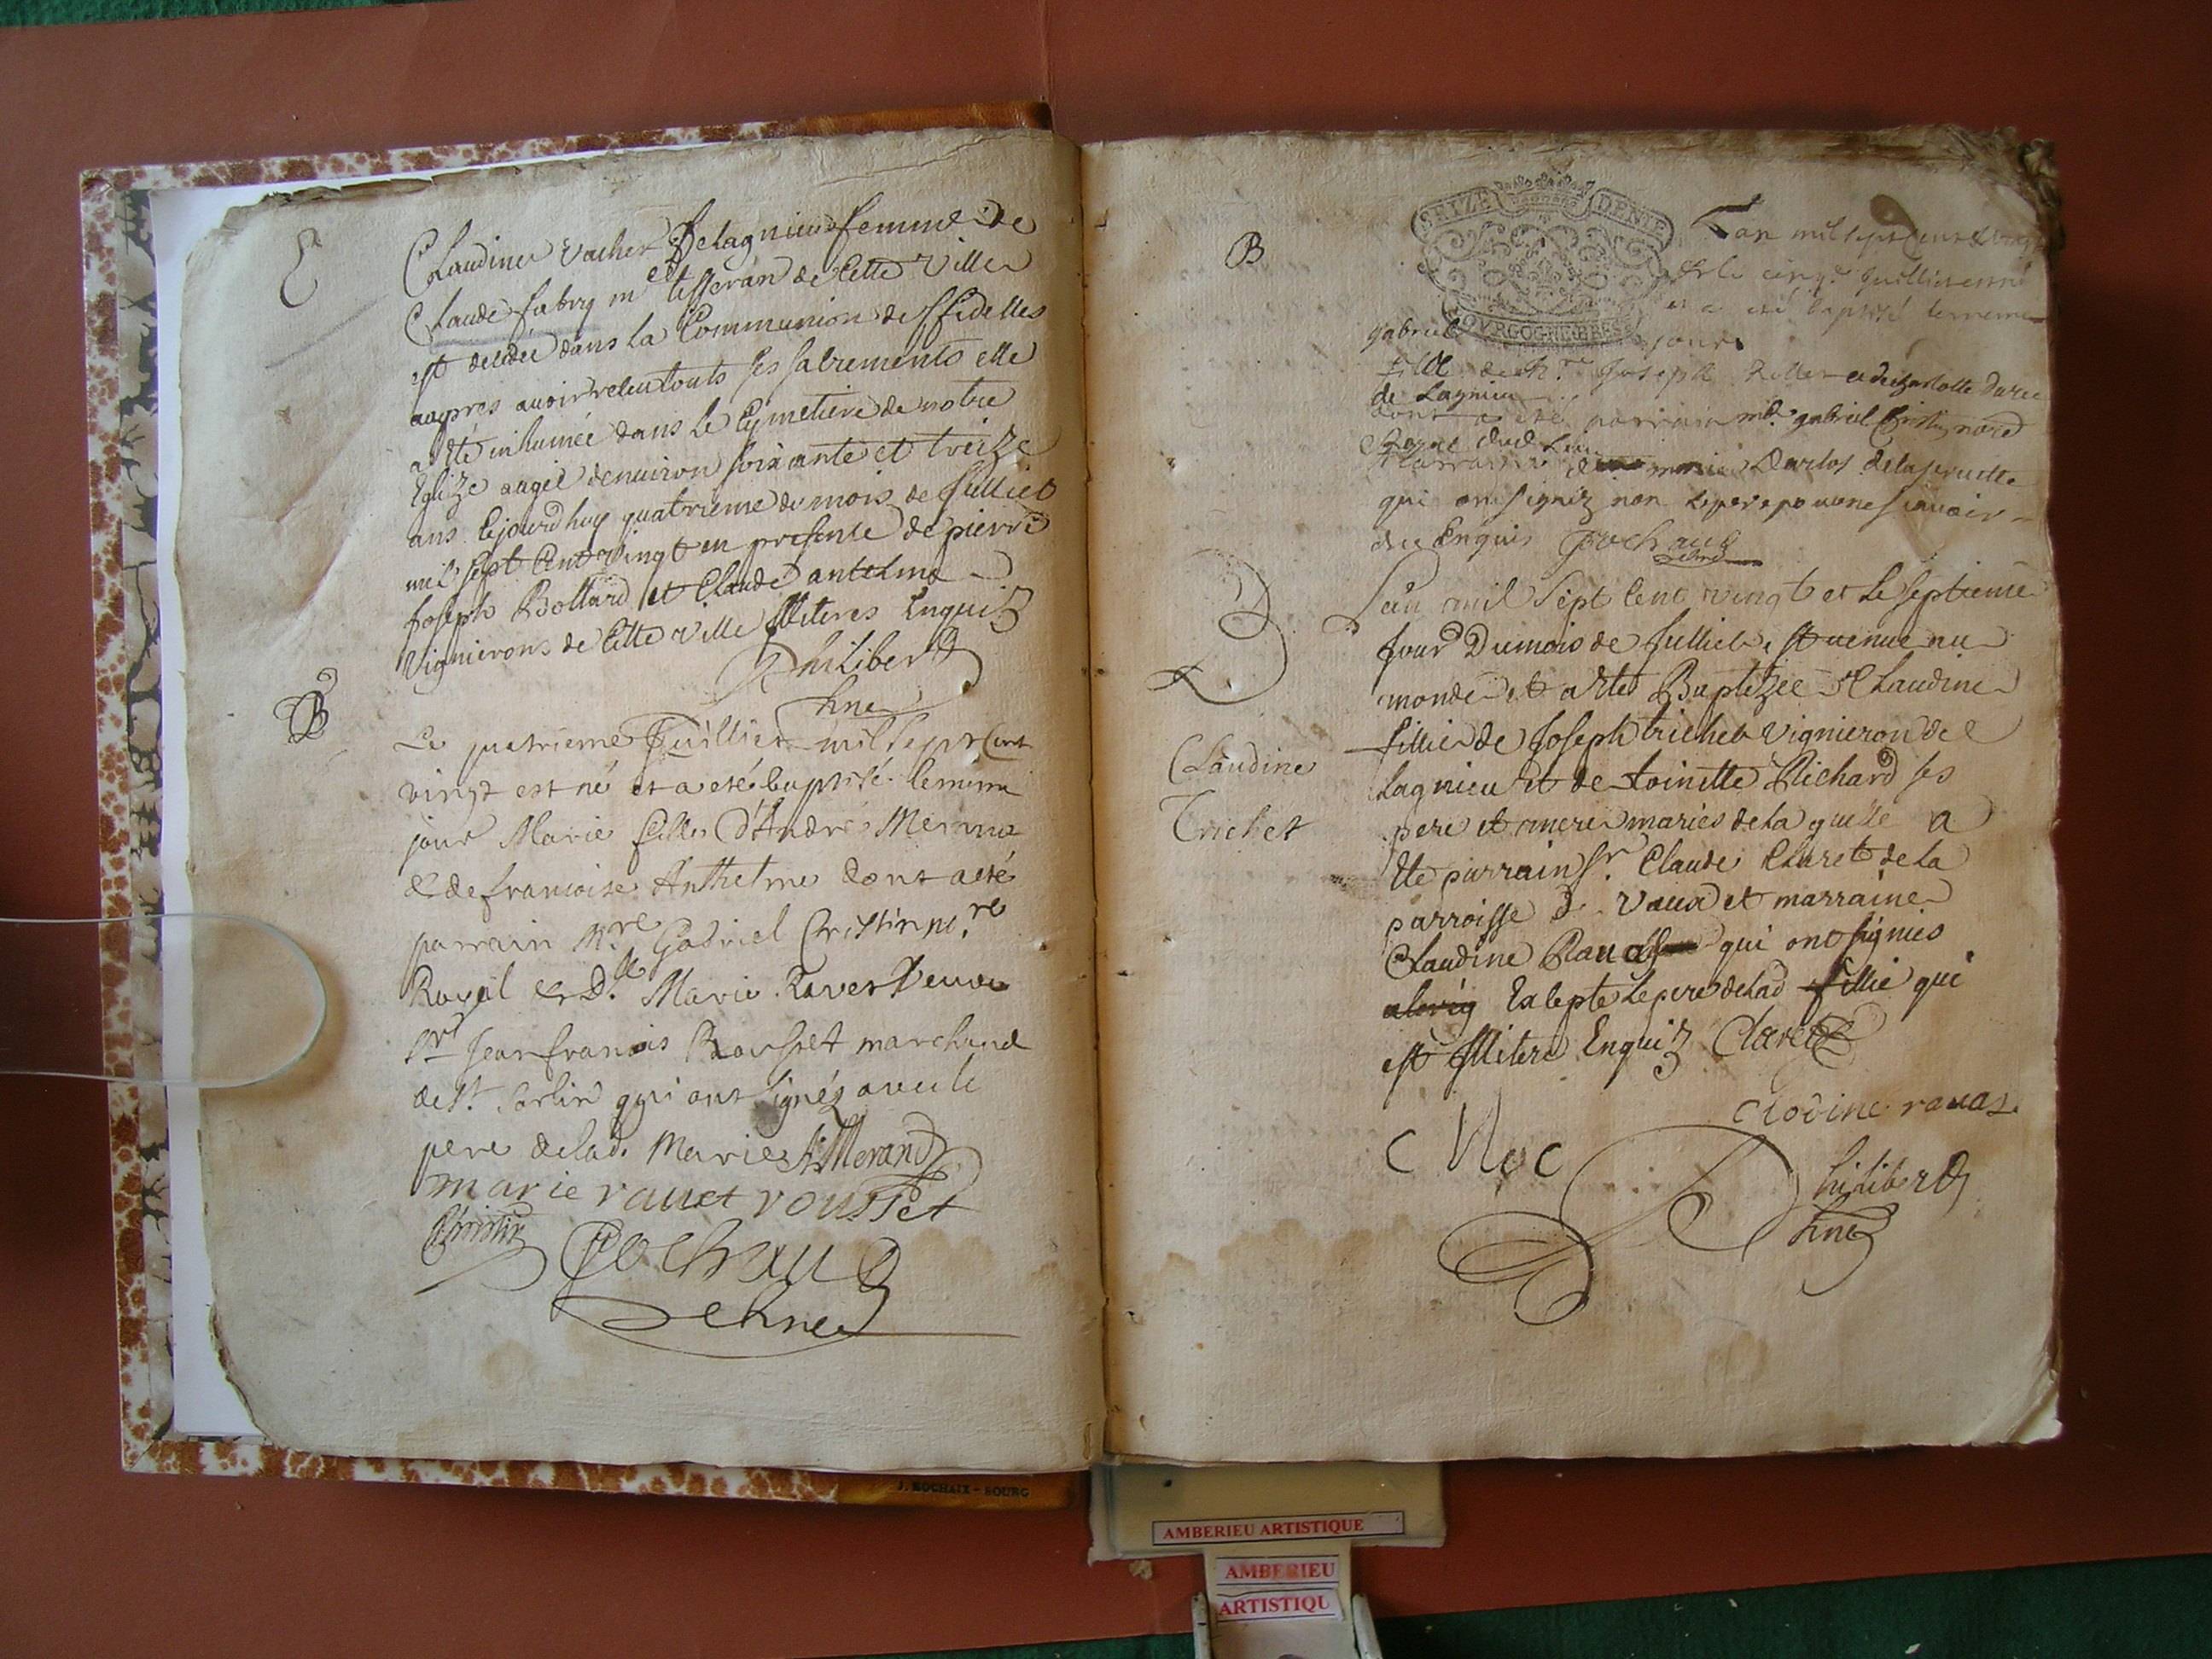 E
Claudine Vacher De lagnieu femme de
Claude fabry me tisseran de Cette Ville
est decedée dans la Communion des ffidelles
aupres avoir receu touts ses sacrements elle
a êté inhumée dans le Cymetiere de notre
Eglize augée denuiron soixante et treize
ans Cejourdhuy quatrieme du mois de Julliet
mil sept Cent Vingt en presence de pierre
Joseph Bottard et Claude antelme
Vignierons de Cette Ville Illiteres Enquiz
Philiberd
B
Le quatrieme Juilliet mil sept Cent
vingt est né et a eté baptisé le mime
jour Marie fille d'André Meranz
& de francoise Anthelme dont a eté
parrain Mre Gabriel Christin nore
Royal & Dlle Marie Ravet Veuve
Sr Jean francois Rousset marchand
de St Sorlin qui ont signéz avec le
pere de lad. Marie A Merand
marie rauet rousset
Christin
Cochaud
J. ROCHAIX - BOURG
B
SEIZE DENIE
BOVRGOGNE BRESSE
Lan mil sept Cent & vingt
& le cinqe Juilliet est né
et a eté baptisé le meme
jour
gabriel
fille de Mre Joseph
de Lagnieu
dont a eté parrain me gabriel Christin nore
Royal
qui on signéz non le pere pour ne scauoir
de ce Enquis Cochaud
Lan mil Sept Cent vingt et Le septieme
Jour Dumois de Julliet, Est venue au
monde et a êté Baptizée Claudine
fillie de Joseph trichet Vignieron de
Lagnieu et de toinette Richard ses
pere et mere mariés de la quelle a
êté parrain Sr. Claude Claret de la
parroisse de Vaux et marraine
Claudine Raua qui ont signiés
Excepté Le pere de lad fillie qui
est Illitere Enquiz Claret
Claudine
Trichet
Clodine rauaz.
Philiberd
AMBERIEU ARTISTIQUE
AMBERIEU
ARTISTIQU